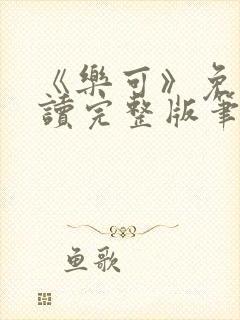 《樂可》免
讀完整版筆
鱼歌